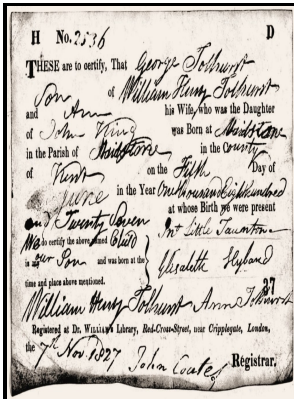 H No. 2536 D
THESE are to certify, That George Tolhurst
Son of William Henry Tolhurst
and Ann his Wife, who was the Daughter
of John King was Born at Maidstone
in the Parish of Maidstone in the County
of Kent on the Fifth Day of
June in the Year One thousand Eight hundred
and Twenty Seven at whose Birth we were present
We do certify the above named Child
is our Son and was born at the
time and place above mentioned.
Ant Little Taunton
Elisabeth Hyland
27
William Henry Tolhurst Ann Tolhurst
Registered at Dr. WILLIAMS Library, Red-Cross-Street, near Cripplegate, London,
the 7th Nov. 1827 John Coates Registrar.